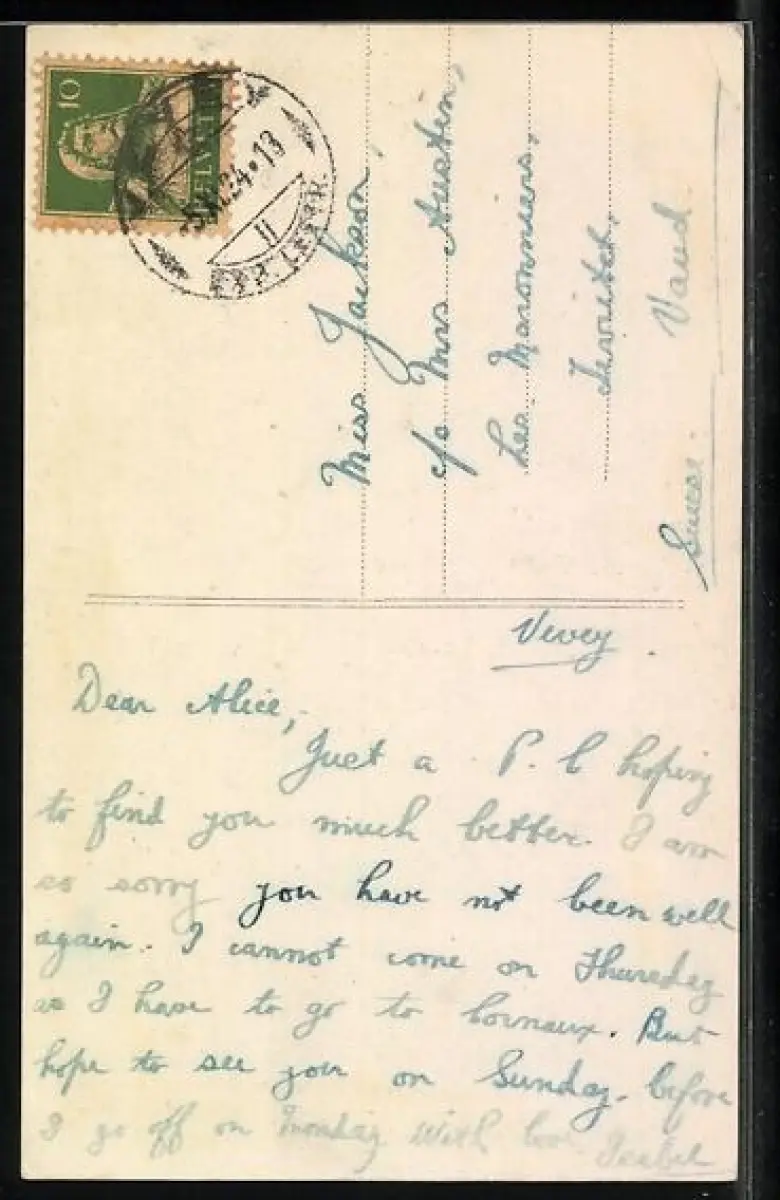 10
HELVETIA
24.13
II
Miss Jackson,
c/o Mrs Austin,
Les Maronniers,
Territet,
Vaud
Suisse.
Vevey.
Dear Alice,
Just a P. C hoping
to find you much better. I am
so sorry you have not been well
again. I cannot come on Thursday
as I have to go to Cornaux. But
hope to see you on Sunday. before
I go off on Monday with love Isabel